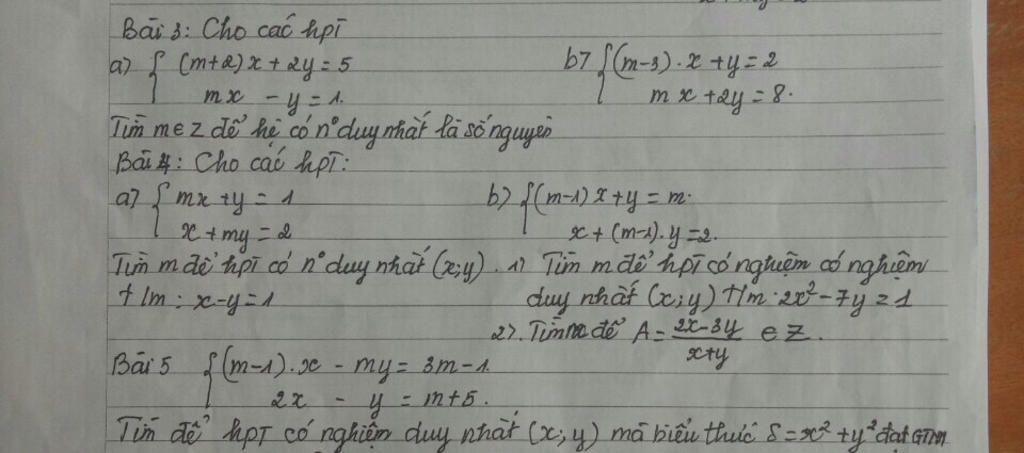 Bài 3: Cho các hpT
a) { (m+2)x + 2y = 5 b) { (m-3).x + y = 2
mx - y = 1. mx + 2y = 8.
Tìm m ∈ Z để hệ có n° duy nhất là số nguyên
Bài 4: Cho các hpT:
a) { mx + y = 1 b) { (m-1)x + y = m.
x + my = 2 x + (m-1).y = 2.
Tìm m để hpT có n° duy nhất (x;y). 1) Tìm m để hpT có nghiệm có nghiệm
t/m: x-y=1 duy nhất (x;y) t/m. 2x²-7y=1
2). Tìm m để A = (2x-3y)/(x+y) ∈ Z.
Bài 5 { (m-1).x - my = 3m-1.
2x - y = m+5.
Tìm để hpT có nghiệm duy nhất (x;y) mà biểu thức S = x² + y² đạt